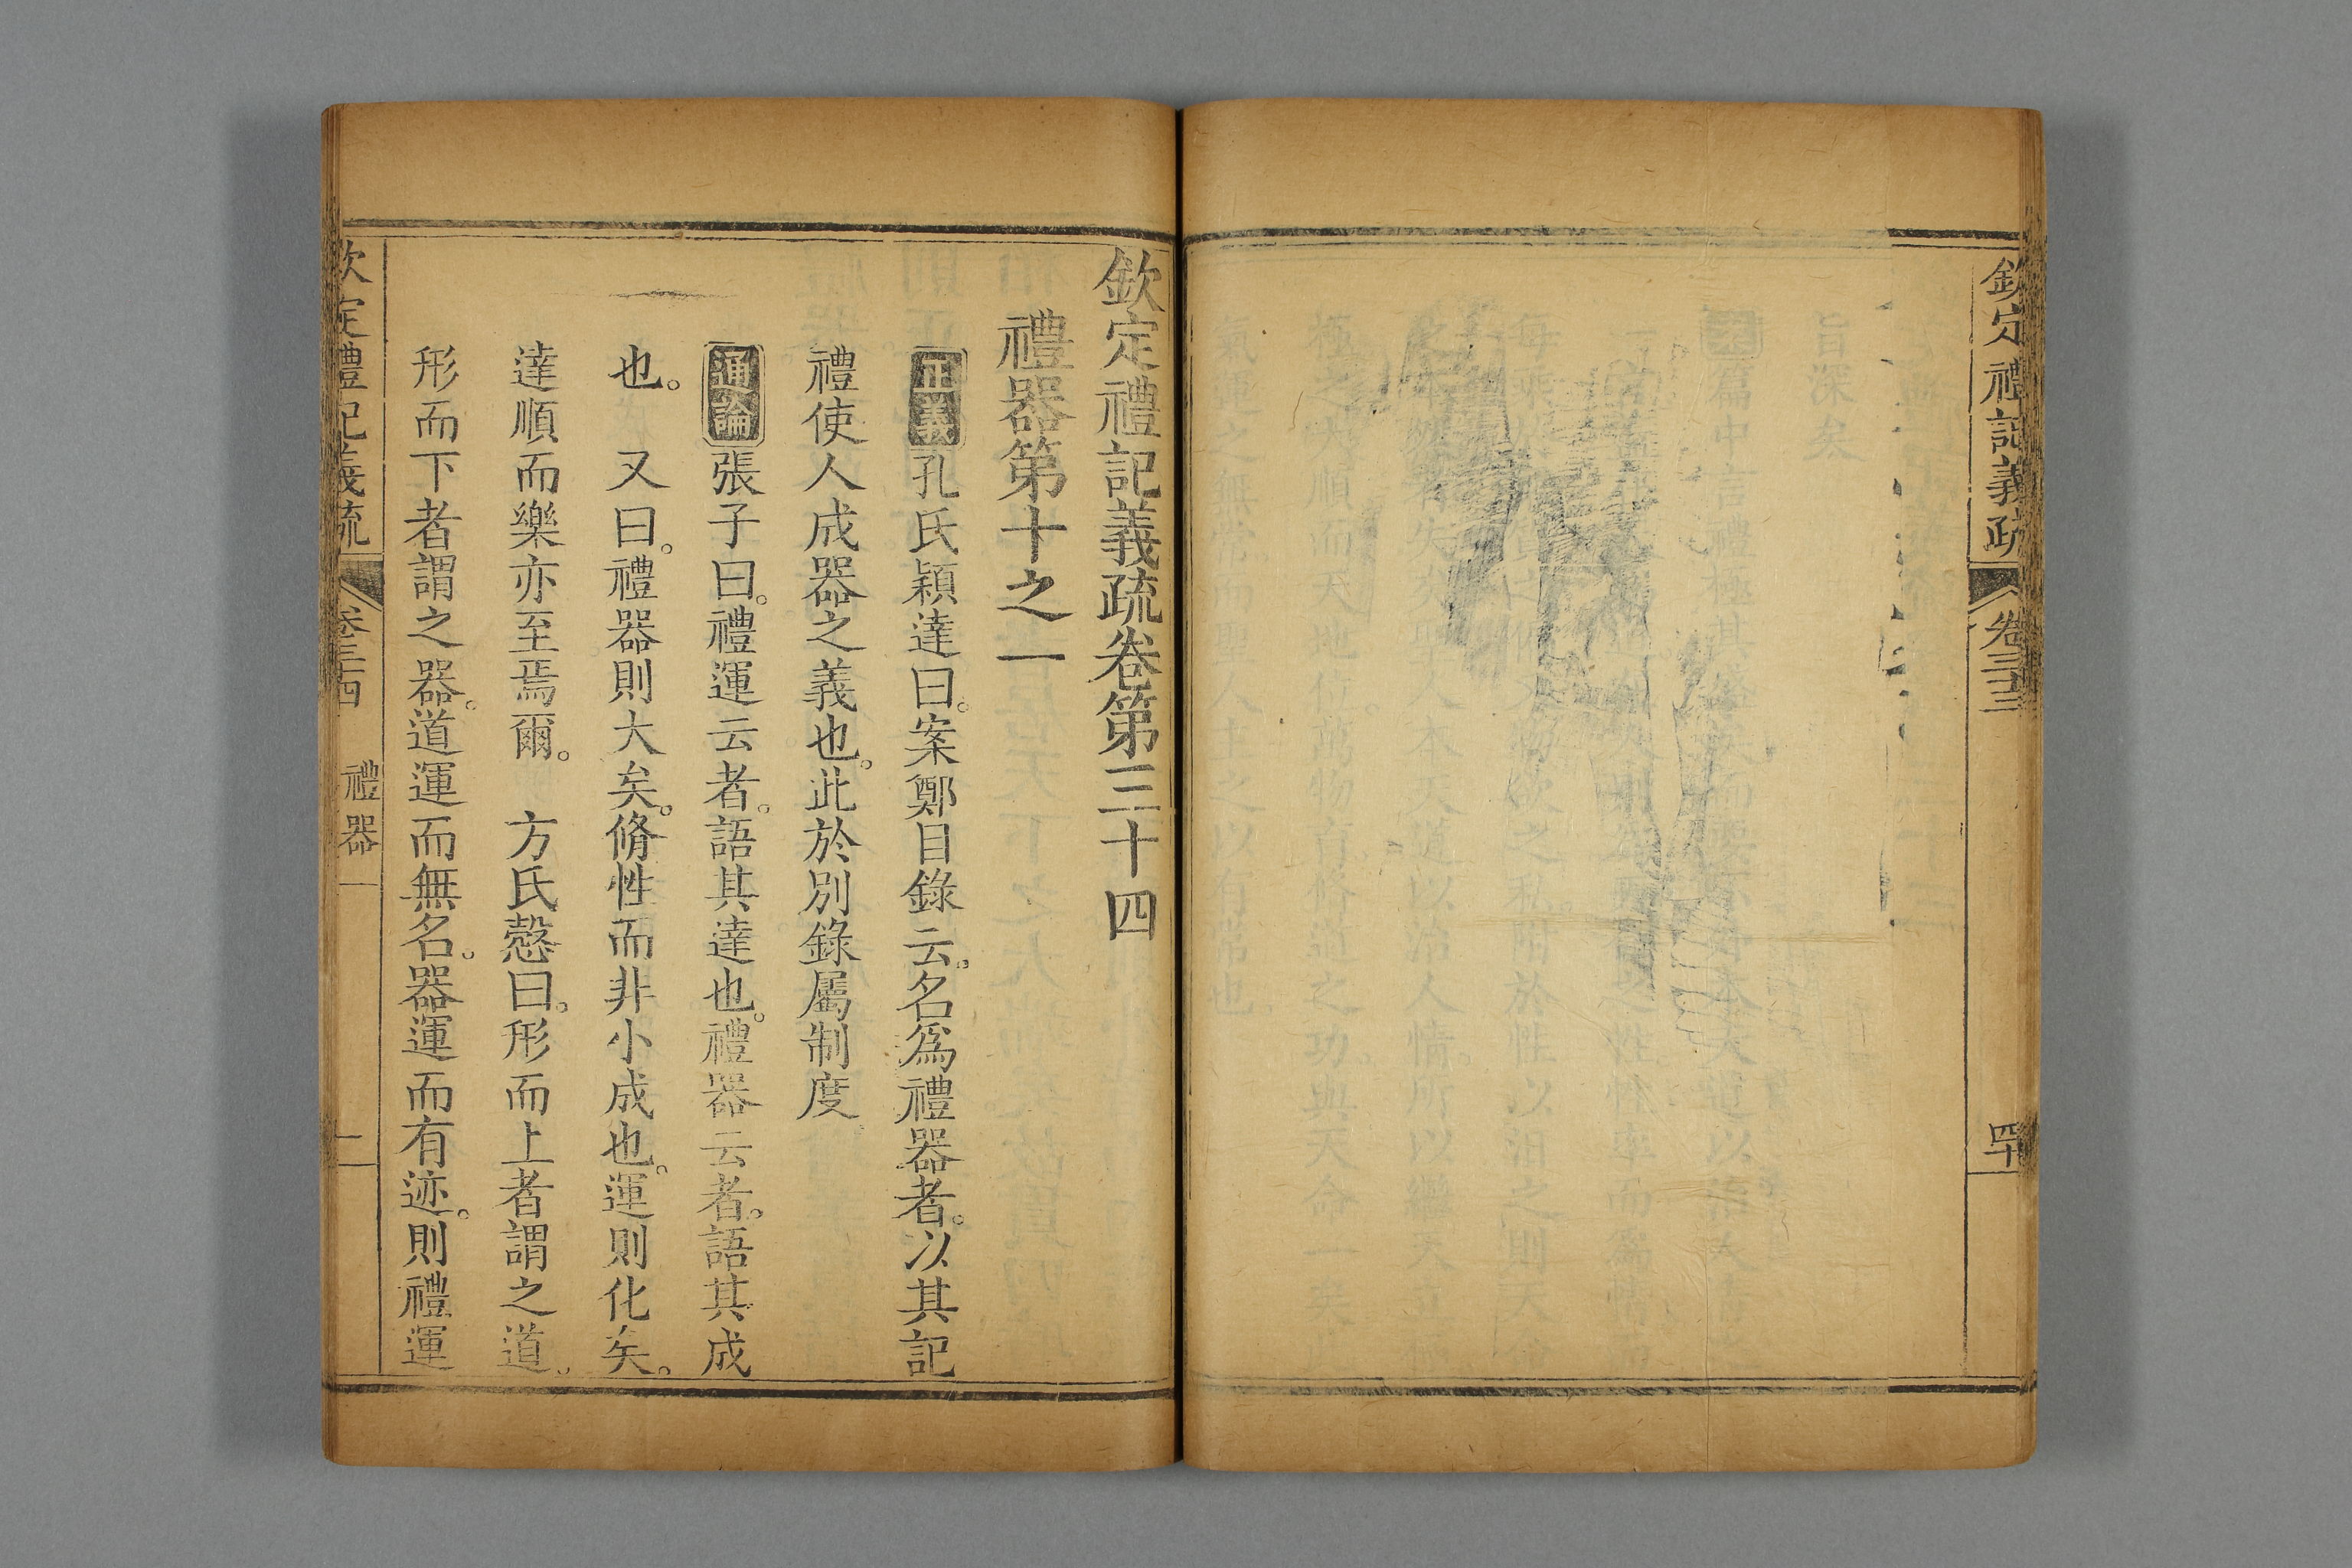 欽定禮記義疏 卷三十三 四十
欽定禮記義疏卷第三十四
禮器第十之一
正義孔氏穎達曰。案鄭目錄云。名爲禮器者。以其記
禮使人成器之義也。此於別錄屬制度
通論張子曰。禮運云者。語其達也。禮器云者。語其成
也。 又曰。禮器則大矣。脩性而非小成也。運則化矣。
達順而樂亦至焉爾。 方氏慤曰。形而上者謂之道。
形而下者謂之器。道運而無名。器運而有迹。則禮運
欽定禮記義疏 卷三十四 禮器 一